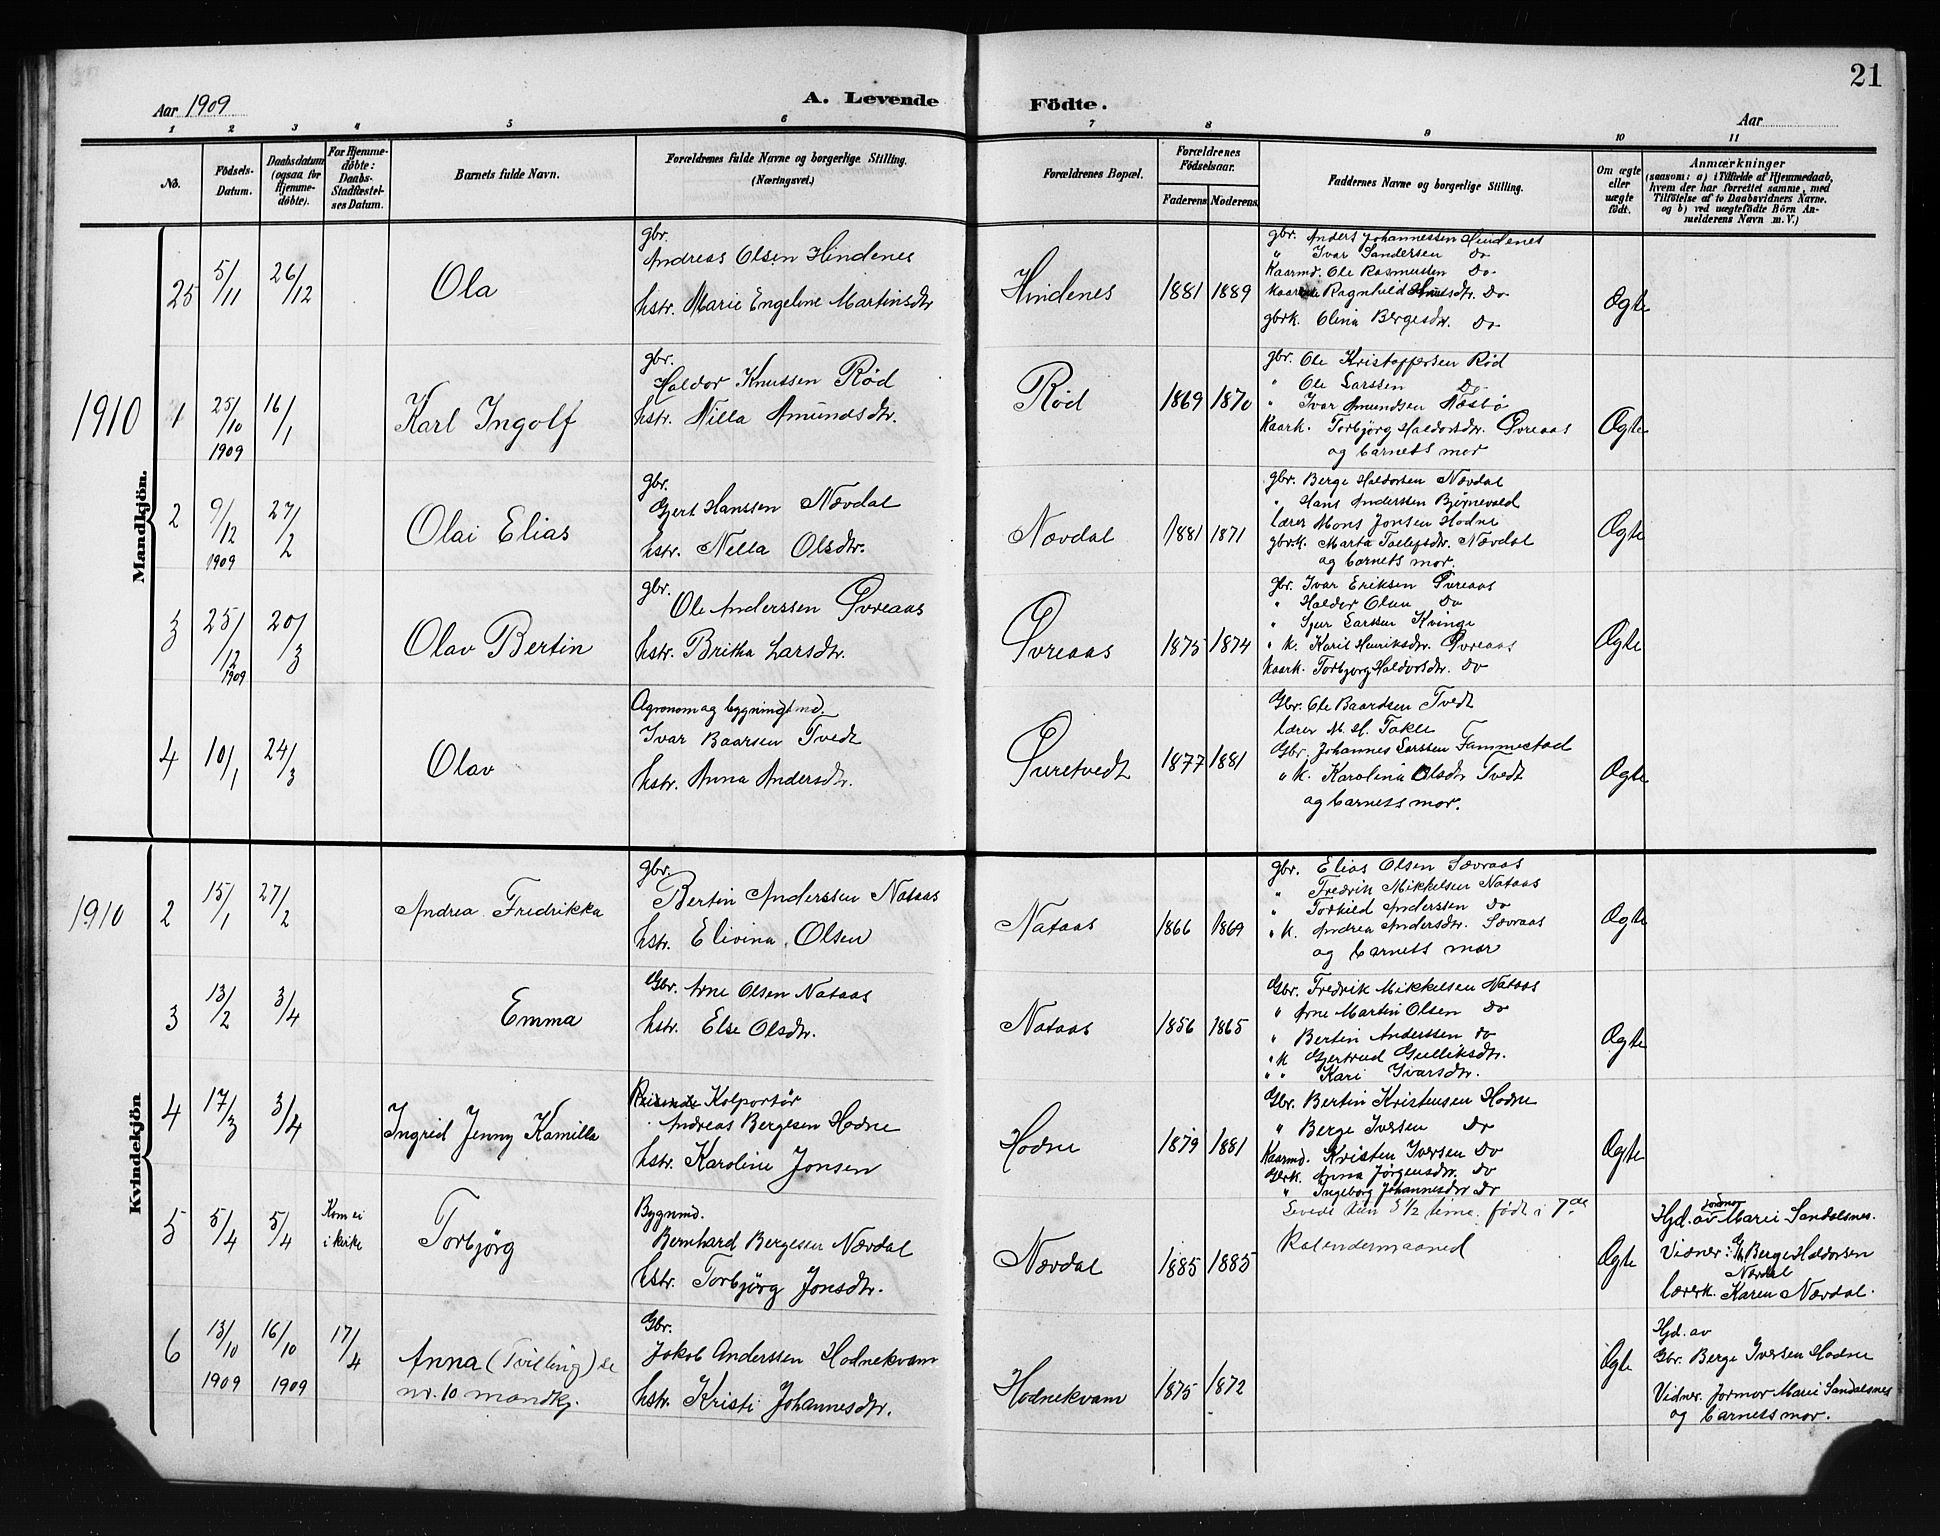 21
Aar 1909
A. Levende Födte.
Aar
1 2 3 4 5 6 7 8 9 10 11
No.
Födsels-
Datum.
Daabsdatum
(ogsaa for
Hjemme-
döbte).
For Hjemme-
döbte:
Daabs-
Stadfæstel-
ses Datum.
Barnets fulde Navn.
Forældrenes fulde Navne og borgerlige Stilling.
(Næringsvei.)
Forældrenes Bopæl.
Forældrenes
Födselsaar.
Faderens. Moderens.
Faddernes Navne og borgerlige Stilling.
Om ægte
eller
uægte
födt.
Anmærkninger
(saasom: a) i Tilfælde af Hjemmedaab,
hvem der har forrettet samme, med
Tilföielse af to Daabsvidners Navne.
og b) ved uægtefödte Börn An-
melderens Navn m. V.)
Mandkjön.
25
5/11
26/12
Ola
gbr.
Andreas Olsen Hindenes
hstr. Marie Engeline Martinsdtr
Hindenes
1881 1889
gbr. Anders Johannessen Hindenes
" Ivar Sandersen Do
Kaarmd. Ole Rasmussen Do
Kaarenke Ragnhild Knutsdtr. Do
gbrk. Olina Bergesdtr. Do
Ægte
1910
1
25/10
1909
16/1
Karl Ingolf
gbr.
Haldor Knutsen Rød
hstr. Nilla Amundsdtr.
Rød
1869 1870
gbr. Ole Kristoffersen Rød
" Ole Larssen Do
" Ivar Amundsen Næsbø
Kaark. Torbjørg Haldorsdtr. Øvreaas
og barnets mor
Ægte
2
9/12
1909
27/2
Olai Elias
gbr.
Gjert Hanssen Nævdal
hstr. Nella Olsdtr.
Nævdal
1881 1871
gbr. Berge Haldorsen Nævdal
" Hans Anderssen Bjørnevold
lærer Mons Jonsen Hodne
gbrk. Marta Tollefsdtr. Nævdal
og barnets mor.
Ægte
3
25/12
1909
20/3
Olav Bertin
gbr.
Ole Anderssen Øvreaas
hstr. Britha Larsdtr.
Øvreaas
1875 1874
gbr. Ivar Eriksen Øvreaas
" Haldor Olsen Do
" Sjur Larssen Kvinge
" k. Karit Henriksdtr. Øvreaas
Kaark. Torbjørg Haldorsdtr. Do
Ægte
4
10/1
24/3
Olav
Agronom og bygningsmd.
Ivar Baarsen Tvedt
hstr. Anna Andersdtr.
Øvretvedt
1877 1881
Gbr. Ole Baardsen Tvedt
lærer M. H. Takle
Gbr. Johannes Larssen Fammestad
" k. Karolina Olsdtr Tvedt
og barnets mor.
Ægte
Kvindekjön
1910
2
15/1
27/2
Andrea Fredrikka
gbr.
Bertin Anderssen Nataas
hstr. Elivina Olsen
Nataas
1866 1869
gbr. Elias Olsen Sævraas
" Fredrik Mikkelsen Nataas
" Torkild Anderssen Do
" k. Andrea Andersdtr. Sævraas
og barnets mor
Ægte
3
13/2
3/4
Emma
Gbr. Arne Olsen Nataas
hstr. Else Olsdtr.
Nataas
1856 1865
Gbr. Fredrik Mikkelsen Nataas
" Arne Martin Olsen Do
" Bertin Anderssen do
" k Gjertrud Gulliksdtr.
" " Kari Ivarsdtr.
Ægte
4
17/3
3/4
Ingrid Jenny Kamilla
Reisende Kolportör
Andreas Bergesen Hodne
hstr. Karoline Jonsen
Hodne
1879 1881
Gbr. Bertin Kristensen Hodne
" Berge Iversen Do
Kaarmd. Kristen Iversen Do
Gbrk. Anna Jørgensdtr. Do
" Ingeborg Johannesdtr Do
Ægte
5
5/4
5/4
Kom ei
i kirke
Torbjørg
Bygnmd.
Bernhard Bergesen Nævdal
hstr. Torbjørg Jonsdtr.
Nævdal
1885 1885
Levede kun 5 1/2 time. født i 7de
Kalendermaaned
Ægte
Hjd. av jordmor Marie Sandalsnes.
Vidner: Gbr Berge Haldorsen
Nævdal
lærerk. Karen Nævdal.
6
13/10
1909
16/10
1909
17/4
Anna (Tvilling) se
nr. 10 mandkj.
Gbr.
Jakob Anderssen Hodnekvam
hstr. Kristi Johannesdtr.
Hodnekvam
1875 1872
Ægte
Hjd. av
Gbr. Berge Iversen Hodne
Vidner. Jormor Marie Sandalsnes
og barnets mor.